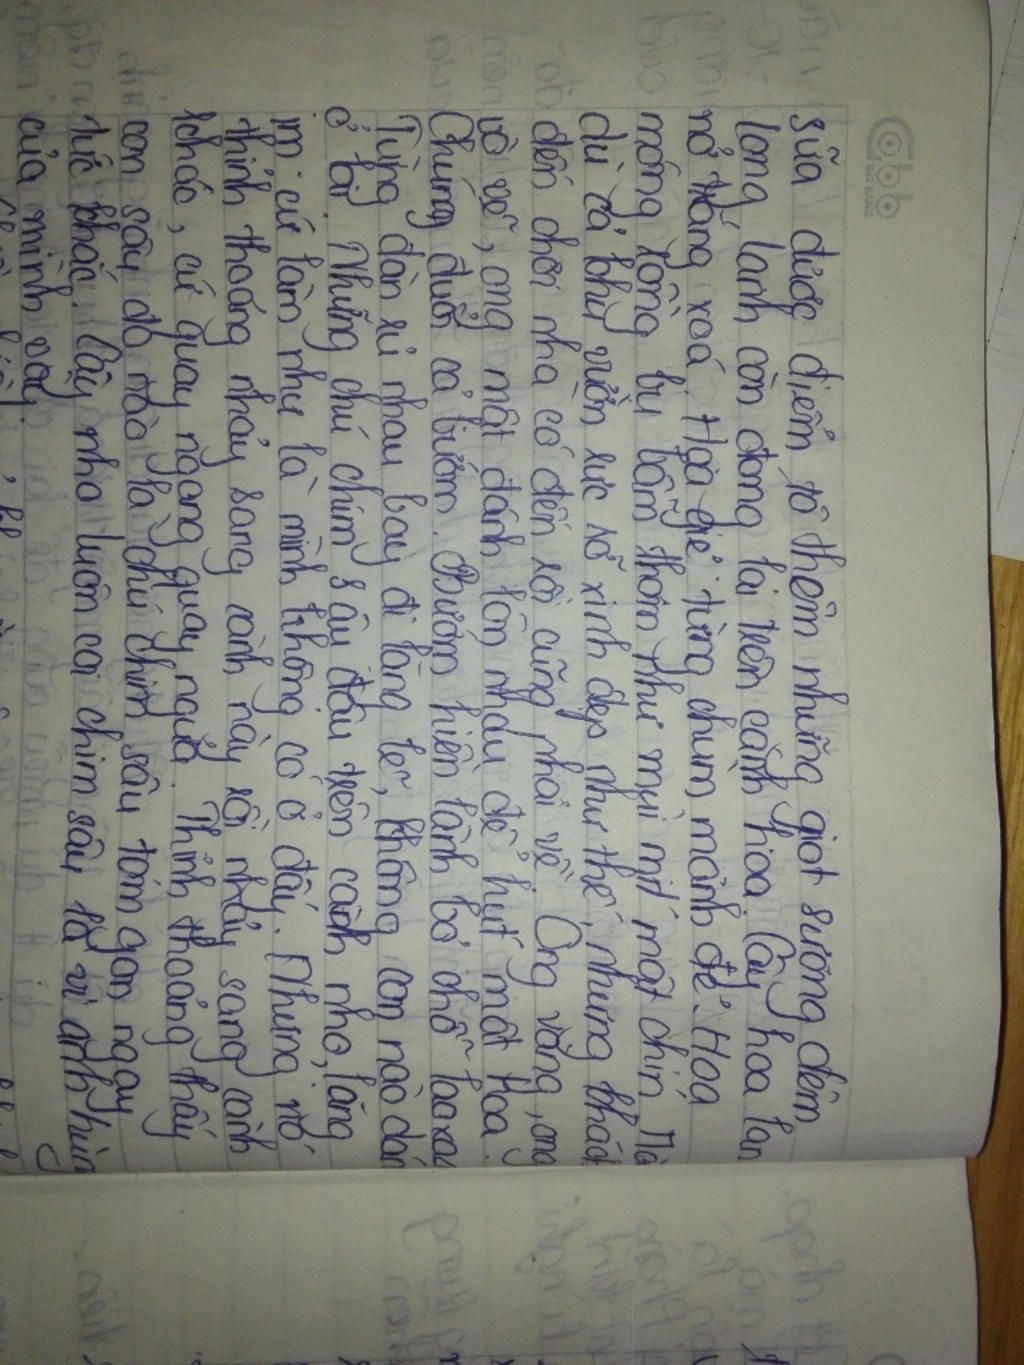 sữa được điểm tô thêm những giọt sương đêm
long lanh còn đọng lại trên cành hoa. Cây hoa lan
nở trắng xoá. Hoa giẻ từng chùm mảnh dẻ. Hoa
móng rồng bụ bẫm thơm như mùi mít mật chín. Mà
dù cả khu vườn rực rỡ xinh đẹp như thế, nhưng khách
đến chơi nhà có đến rồi cũng phải về. Ong vàng, ong
vò vẽ, ong mật đánh lộn nhau để hút mật hoa.
Chúng đuổi cả bướm. Bướm hiền lành bỏ chỗ lao xao
Từng đàn rủ nhau bay đi lặng lẽ, không con nào dám
ở lại. Những chú chim sâu đậu trên cành nho, lặng
im cứ làm như là mình không có ở đấy. Nhưng nó
thỉnh thoảng nhảy sang cành này rồi nhảy sang cành
khác, cứ quay ngang quay ngửa. Thỉnh thoảng thấy
con sâu đo nào là chú chim sâu tóm gọn ngay
tức khắc. Cây nho luôn coi chim sâu là vị anh hùng
của mình vậy.